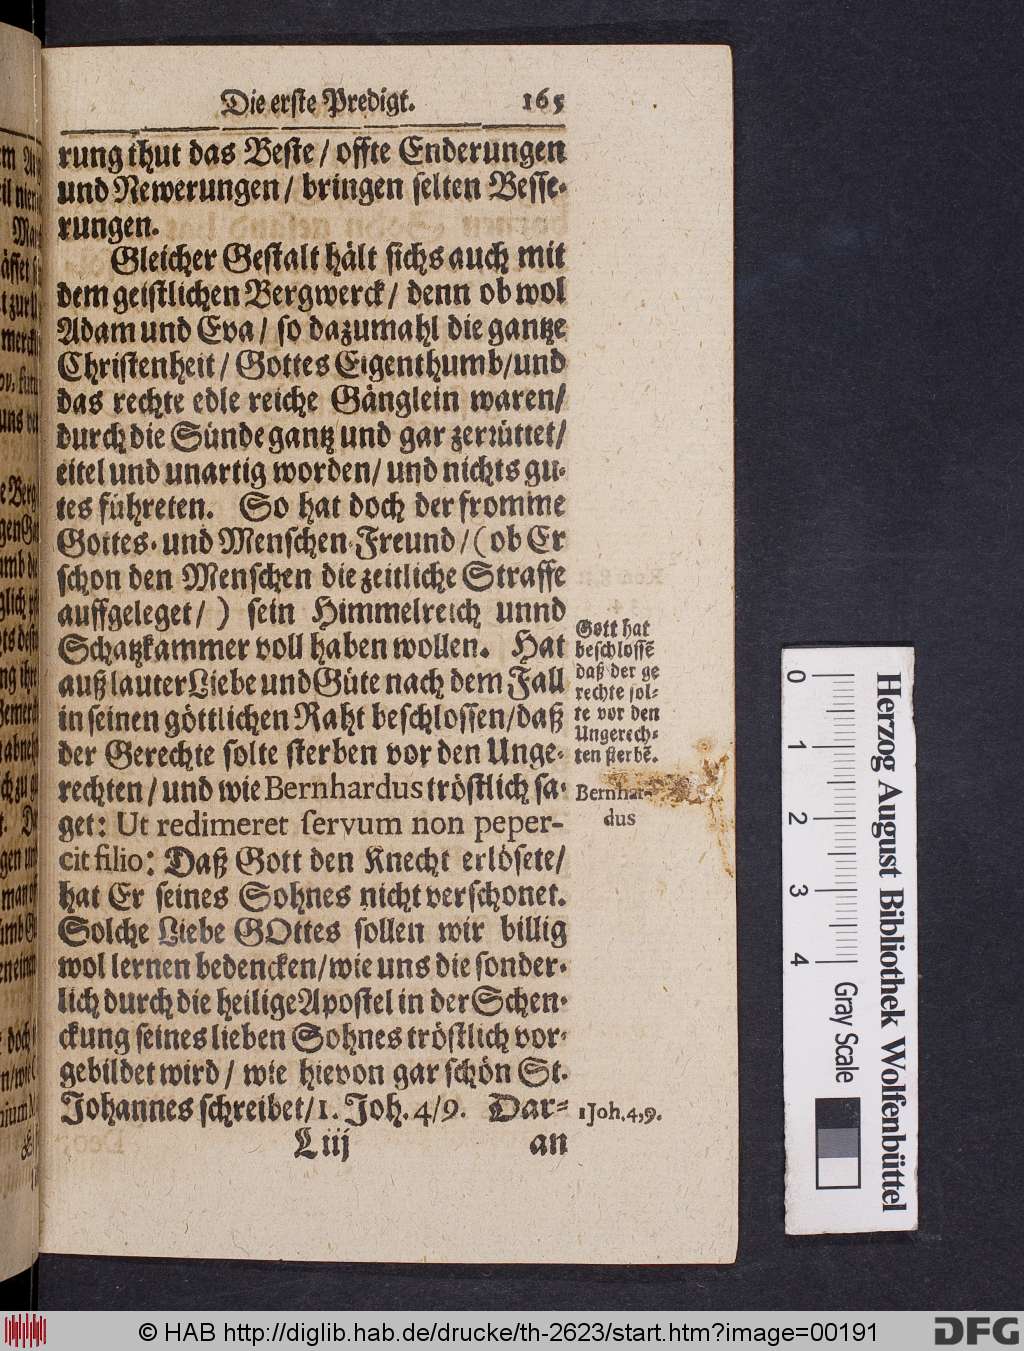 Die erste Predigt. 165
rung thut das Beste / offte Enderungen
und Newerungen / bringen selten Besse-
rungen.
Gleicher Gestalt hält sichs auch mit
dem geistlichen Bergwerck / denn ob wol
Adam und Eva / so dazumahl die gantze
Christenheit / Gottes Eigenthumb / und
das rechte edle reiche Gänglein waren /
durch die Sünde gantz und gar zerrüttet /
eitel und unartig worden / und nichts gu-
tes führeten. So hat doch der fromme
Gottes- und Menschen-Freund / (ob Er
schon den Menschen die zeitliche Straffe
auffgeleget / ) sein Himmelreich unnd
Schatzkammer voll haben wollen. Hat
auß lauter Liebe und Güte nach dem Fall
in seinen göttlichen Raht beschlossen / daß
der Gerechte solte sterben vor den Unge-
rechten / und wie Bernhardus tröstlich sa-
get: Ut redimeret servum non peper-
cit filio: Daß Gott den Knecht erlösete /
hat Er seines Sohnes nicht verschonet.
Solche Liebe GOttes sollen wir billig
wol lernen bedencken / wie uns die sonder-
lich durch die heilige Apostel in der Schen-
ckung seines lieben Sohnes tröstlich vor-
gebildet wird / wie hievon gar schön St.
Johannes schreibet / 1. Joh. 4/9. Dar-
L iij an
Gott hat
beschlossẽ
daß der ge
rechte sol-
te vor den
Ungerech-
ten sterbẽ.
Bernhar-
dus
1 Joh. 4, 9.
0 1 2 3 4
Gray Scale
Herzog August Bibliothek Wolfenbüttel
© HAB http://diglib.hab.de/drucke/th-2623/start.htm?image=00191
DFG